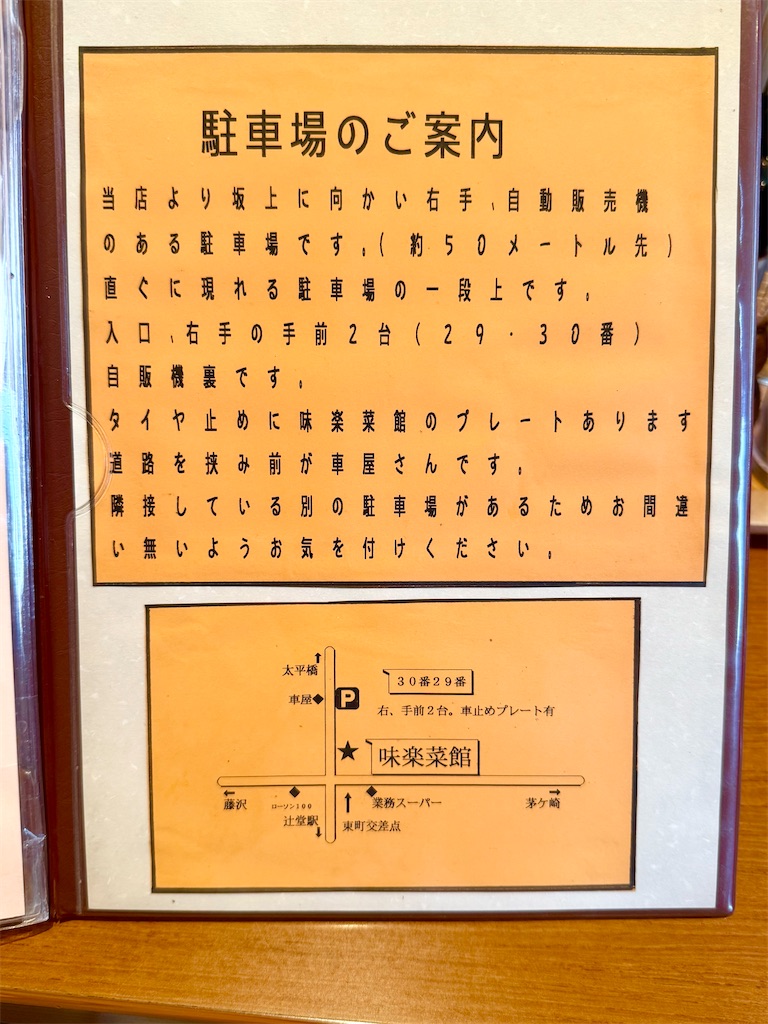 駐車場のご案内
当店より坂上に向かい右手、自動販売機
のある駐車場です。(約50メートル先)
直ぐに現れる駐車場の一段上です。
入口、右手の手前2台(29・30番)
自販機裏です。
タイヤ止めに味楽菜館のプレートあります
道路を挟み前が車屋さんです。
隣接している別の駐車場があるためお間違
い無いようお気を付けください。
↑
太平橋
30番29番
車屋◆
P
右、手前2台。車止めプレート有
★
味楽菜館
←
藤沢
◆
ローソン100
↑
◆
業務スーパー
→
茅ケ崎
辻堂駅
↓
東町交差点